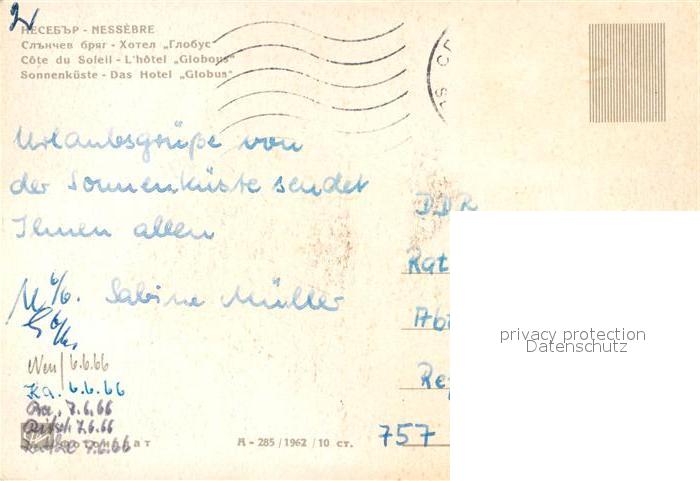 НЕСЕБЪР - NESSÈBRE
Слънчев бряг - Хотел „Глобус“
Côte du Soleil - L'hôtel „Globous“
Sonnenküste - Das Hotel „Globus“
Urlaubsgrüße von
der Sonnenküste sendet
Ihnen allen
Sabine Müller
DDR
Rat
Abt
757
6/6.
Neu/ 6.6.66
Ka. 6.6.66
7.6.66
7.6.66
7.6.66
А - 285 / 1962 / 10 ст.
privacy protection
Datenschutz